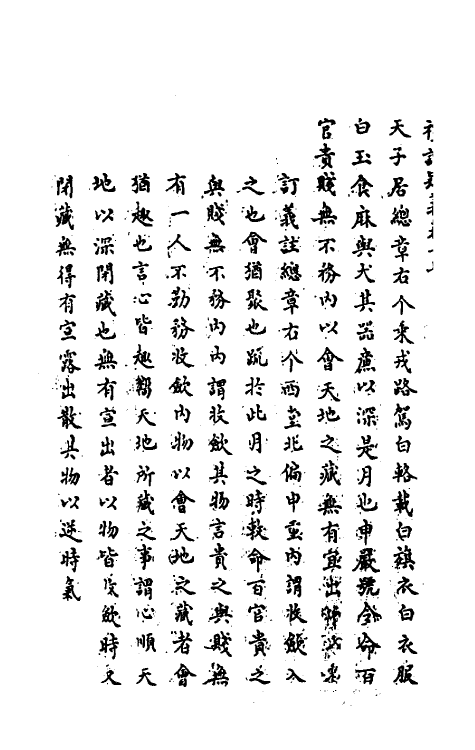 天子居總章右个乘戎路駕白輅載白旗衣白衣服
白玉食麻與犬其器廉以深是月也申嚴號令命百
官貴賤無不務內以會天地之藏無有宣出
訂義註總章右个西室北偏申重內謂收斂入
之也會猶聚也疏於此月之時敕命百官貴之
與賤無不務內內謂收斂其物言貴之與賤無
有一人不勤務收斂內物以會天地之藏者會
猶趣也言心皆趣嚮天地所藏之事謂心順天
地以深閉藏也無有宣出者以物皆收斂時又
閉藏無得有宣露出散其物以逆時氣